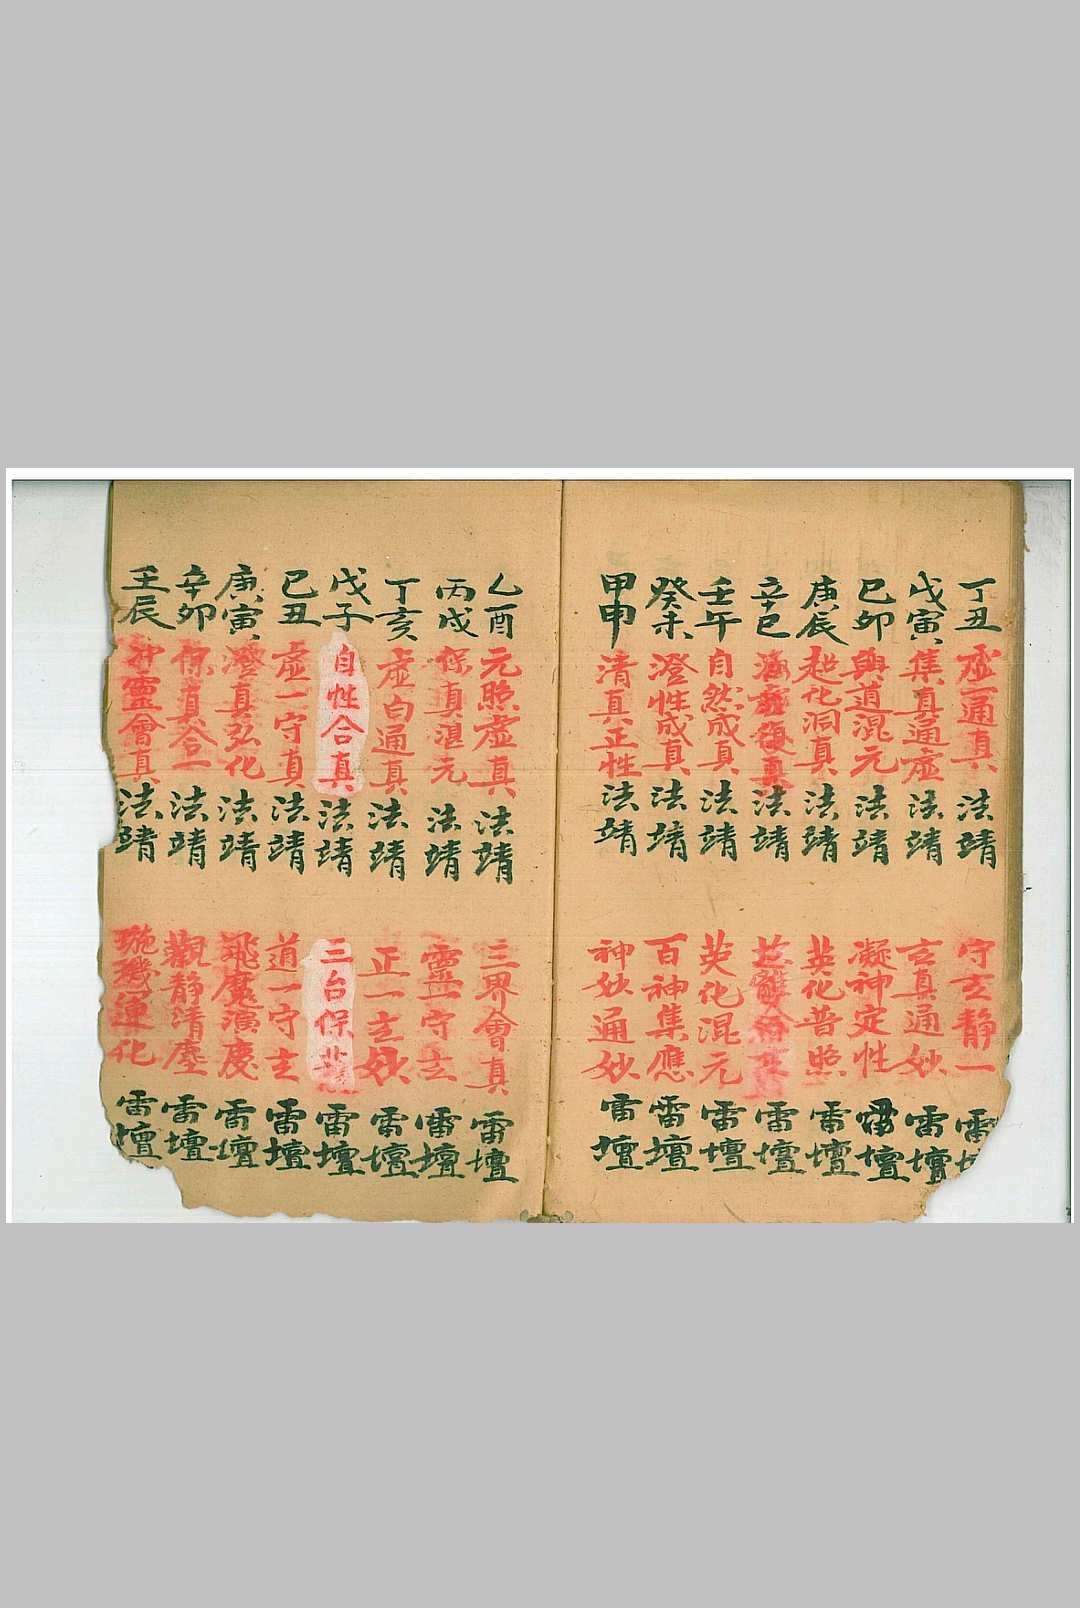 丁丑虛一通真法靖 守玄静一雷壇
戊寅集真通虛法靖 玄真通妙雷壇
巳卯與道混元法靖 凝神定性雷壇
庚辰超化洞真法靖 英化普照雷壇
辛巳真法靖 雷壇
壬午自然成真法靖 英化混元雷壇
癸未澄性成真法靖 百神集應雷壇
甲申清真正性法靖 神妙通妙雷壇
乙酉元照虛真法靖 三界會真雷壇
丙戌保真混元法靖 靈一守玄雷壇
丁亥虛白通真法靖 正一玄妙雷壇
戊子自性合真法靖 三台保雷壇
巳丑虛一守真法靖 道一守玄雷壇
庚寅澄真弘化法靖 飛魔演慶雷壇
辛卯保真合一法靖 觀静清塵雷壇
壬辰靈會真法靖 璇璣運化雷壇